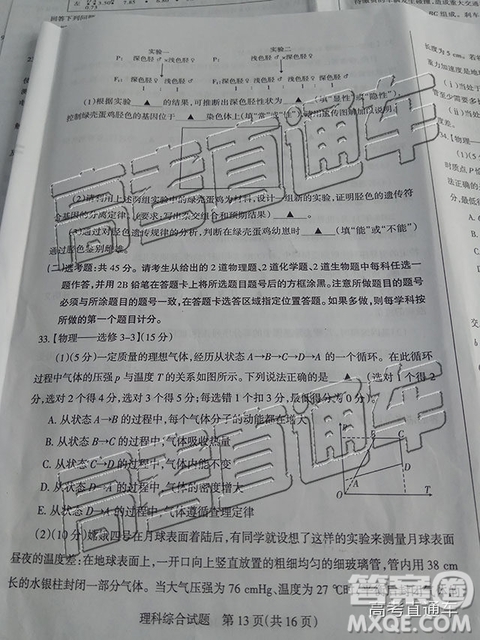 回答下列问题
实验一 实验二
P: 深色胫♂ × 浅色胫♀ P: 浅色胫♂ × 深色胫♀
F₁: 深色胫♂ 深色胫♀ F₁: 深色胫♂ 浅色胫♀
(1)根据实验 ▲ 的结果,可推断出深色胫性状为 ▲ (填“显性”或“隐性”);
控制绿壳蛋鸡胫色的基因位于 ▲ 染色体上(填“常”或“性”),
(3)通过对胫色遗传现象的分析,判断在绿壳蛋鸡幼崽时 ▲ (填“能”或“不能”)
通过胫色鉴别雌雄。
(二)选考题:共 45 分。请考生从给出的 2 道物理题、2 道化学题、2 道生物题中每科任选一
题作答,并用 2B 铅笔在答题卡上将所选题目题号后的方框涂黑。注意所做题目的题号
必须与所涂题目的题号一致,在答题卡选答区域指定位置答题。如果多做,则每学科按
所做的第一个题目计分。
33. 【物理——选修 3-3】(15 分)
(1)(5 分)一定质量的理想气体,经历从状态 A→B→C→D→A 的一个循环。在此循环
过程中气体的压强 p 与温度 T 的关系如图所示。下列说法正确的是 ▲ (选对 1 个得 2
分,选对 2 个得 4 分,选对 3 个得 5 分,每选错 1 个扣 3 分,最低得分为 0 分)
A. 从状态 A→B 的过程中,每个气体分子的动能都在增大
B. 从状态 B→C 的过程中,气体吸收热量
C. 从状态 C→D 的过程中,气体内能不变
D. 从状态 D→A 的过程中,气体的密度增大
E. 从状态 D→A 的过程中,气体遵循查理定律
B C
A D
O T
(2)(10 分)嫦娥四号在月球表面着陆后,有同学就设想了这样的实验来测量月球表面
昼夜的温度差:在地球表面上,一开口向上竖直放置的粗细均匀的细玻璃管,管内用 38 cm
长的水银柱封闭一部分气体。当大气压强为 76 cmHg、温度为 27 ℃时,
理科综合试题 第 13 页(共 16 页)
高考直通车
答案圈